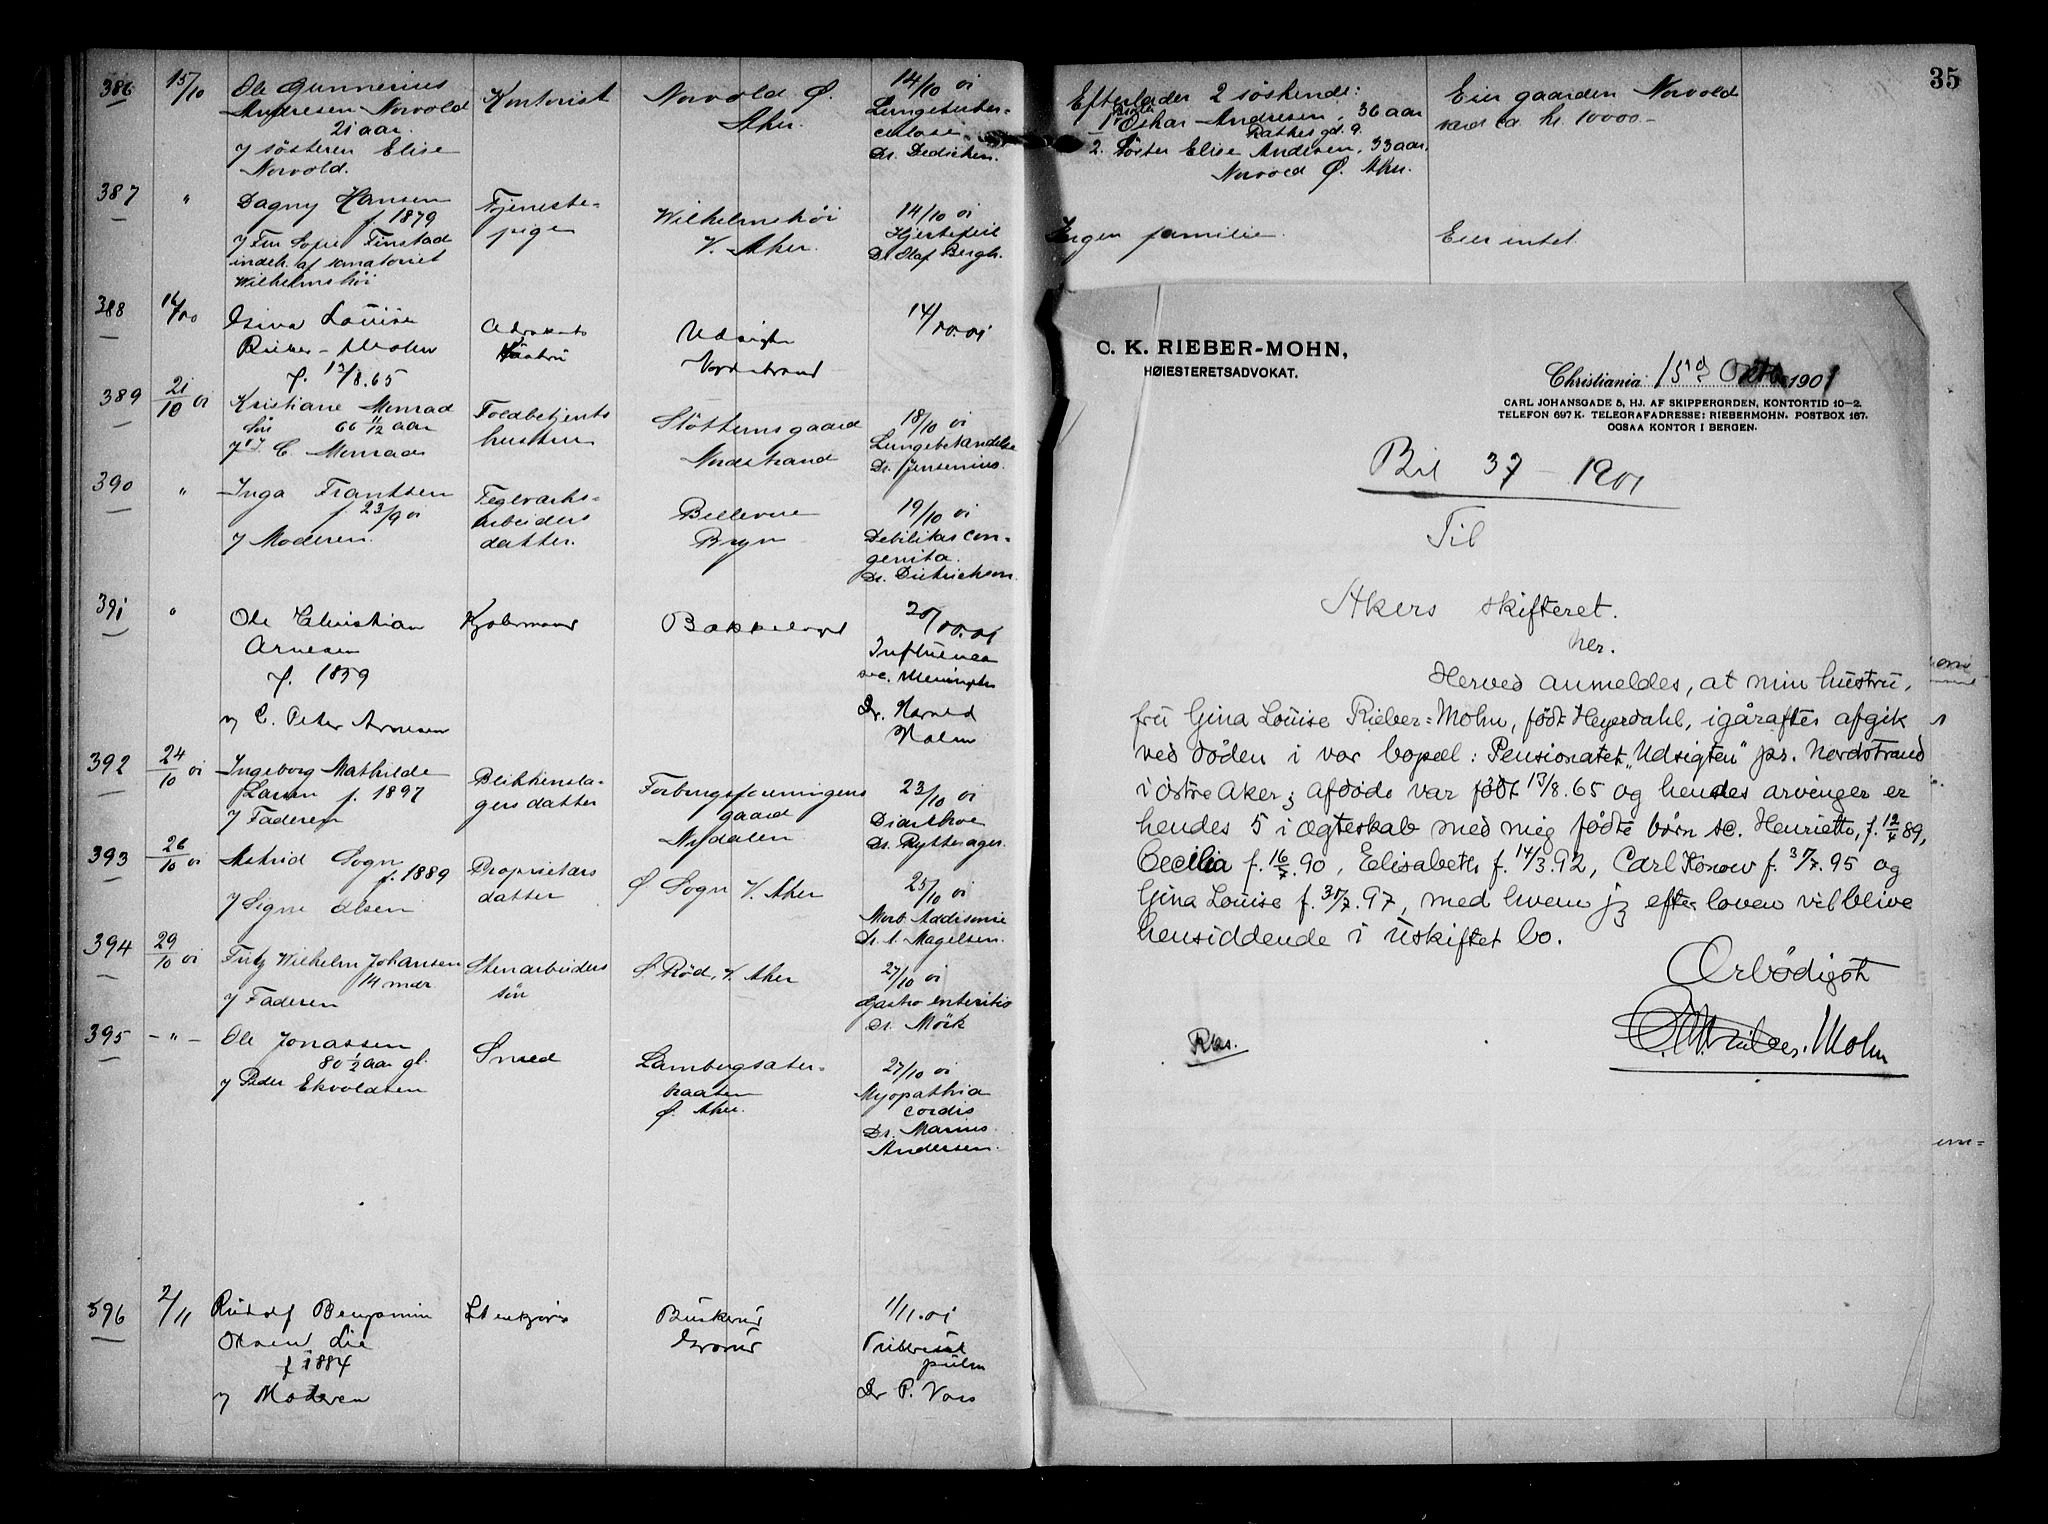 35
386
15/10
Ole Gunnerius
Andresen Norvold
21 aar.
v/ søsteren Elise
Norvold.
Kontorist
Norvold Ø.
Aker.
14/10 01
Lungetuber-
culose
Dr. Dedichen.
Efterlader 2 søskende:
1 Broder Oskar Andresen, 36 aar
Rathkes gd. 9.
2. Søster Elise Andresen, 33 aar.
Norvold Ø. Aker.
Eier gaarden Norvold
værd ca. kr. 10000.-
387
"
Dagny Hansen
f. 1879
v/ Frk Sofie Finstad
indeh. af sanatoriet
Wilhelmshøi
Tjeneste-
pige
Wilhelmshøi
V. Aker.
14/10 01
Hjertefeil
Dr. Olaf Bergh.
Ingen familie.
Eier intet.
388
16/10
Gina Louise
Rieber-Mohn
f. 13/8.65
Advokats
hustru
Udsigten
Nordstrand
14/10.01
389
21/10 01
Kristiane Monrad
66 11/12 aar
v/ C. Monrad
Toldbetjents
hustru
Slottumsgaard
Nordstrand
18/10 01
Lungebetændelse
Dr. Jensenius.
390
"
Inga Frantsen
f. 23/9 01
v/ Moderen.
Teglværks-
arbeiders
datter.
Bellevue
Bryn
19/10 01
Debilitas con-
genita.
Dr. Dietrichson.
391
"
Ole Christian
Arnesen
f. 1859
v/ C. Peter Arnesen
Kjøbmand
Bækkelaget
20/10.01
Influenca
sec. Meningitis
Dr. Harald
Holm
392
24/10 01
Ingeborg Mathilde
Larsen f. 1897
v/ Faderen
Blikkensla-
gers datter
Forbrugsforeningens
gaard
Nydalen
23/10 01
Diarrhoe
Dr. Rytterager.
393
26/10 01
Astrid Sogn
f. 1889
v/ Signe Olsen
Proprietærs
datter
Ø Sogn V. Aker
25/10 01
Morb. Addisonii
Dr. S. Magelsen.
394
29/10 01
Fritz Wilhelm Johansen
14 mdr
v/ Faderen
Stenarbeiders
søn
S. Rød, V. Aker
27/10 01
Gastro enteritis
Dr. Mörk
395
-"-
Ole Jonassen
80 1/2 aar gl.
v/ Peder Ekvoldsen
Smed
Lambergsæter-
braaten
Ø. Aker.
27/10 01
Myopathia
cordis
Dr. Marius
Andersen.
396
2/11
Rudolf Benjamin
Olsen Lie
f 1884
v/ Moderen
Grorud
1/11.01
Tubercul.
pulm
Dr P. Voss
C. K. RIEBER-MOHN,
HØIESTERETSADVOKAT.
Christiania 15de Oktbr 1901
CARL JOHANSGADE 5, HJ. AF SKIPPERGRDEN, KONTORTID 10-2.
TELEFON 697 K. TELEGRAFADRESSE: RIEBERMOHN. POSTBOX 167.
OGSAA KONTOR I BERGEN.
Bil 37 - 1901
Til
Akers skifteret.
her.
Herved anmeldes, at min hustru,
fru Gina Louise Rieber-Mohn, født Heyerdahl, igåraftes afgik
ved døden i vor bopæl: Pensionatet "Udsigten" pr. Nordstrand
i østre Aker; afdøde var født 13/8.65 og hendes arvinger er
hendes 5 i ægteskab med mig fødte børn sc. Henriette, f. 12/4 89,
Cecilia f. 16/7.90, Elisabeth f. 14/3.92, Carl Konow f. 30/7.95 og
Gina Louise f. 30/7.97, med hvem jeg efter loven vil blive
hensiddende i uskiftet bo.
Ærbødigst
C. K. Rieber-Mohn